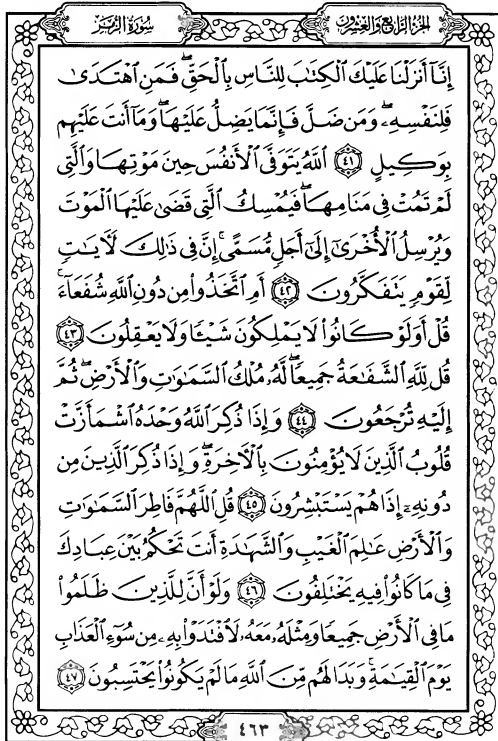 الجزء الرابع والعشرون
سورة الزمر
إِنَّآ أَنزَلْنَا عَلَيْكَ ٱلْكِتَٰبَ لِلنَّاسِ بِٱلْحَقِّۖ فَمَنِ ٱهْتَدَىٰ
فَلِنَفْسِهِۦۖ وَمَن ضَلَّ فَإِنَّمَا يَضِلُّ عَلَيْهَاۖ وَمَآ أَنتَ عَلَيْهِم
بِوَكِيلٍ ٤١ ٱللَّهُ يَتَوَفَّى ٱلْأَنفُسَ حِينَ مَوْتِهَا وَٱلَّتِى
لَمْ تَمُتْ فِى مَنَامِهَاۖ فَيُمْسِكُ ٱلَّتِى قَضَىٰ عَلَيْهَا ٱلْمَوْتَ
وَيُرْسِلُ ٱلْأُخْرَىٰٓ إِلَىٰٓ أَجَلٍ مُّسَمًّىۚ إِنَّ فِى ذَٰلِكَ لَءَايَٰتٍ
لِّقَوْمٍ يَتَفَكَّرُونَ ٤٢ أَمِ ٱتَّخَذُوا۟ مِن دُونِ ٱللَّهِ شُفَعَآءَۚ
قُلْ أَوَلَوْ كَانُوا۟ لَا يَمْلِكُونَ شَيْـًٔا وَلَا يَعْقِلُونَ ٤٣
قُل لِّلَّهِ ٱلشَّفَٰعَةُ جَمِيعًاۖ لَّهُۥ مُلْكُ ٱلسَّمَٰوَٰتِ وَٱلْأَرْضِۖ ثُمَّ
إِلَيْهِ تُرْجَعُونَ ٤٤ وَإِذَا ذُكِرَ ٱللَّهُ وَحْدَهُ ٱشْمَأَزَّتْ
قُلُوبُ ٱلَّذِينَ لَا يُؤْمِنُونَ بِٱلْءَاخِرَةِۖ وَإِذَا ذُكِرَ ٱلَّذِينَ مِن
دُونِهِۦٓ إِذَا هُمْ يَسْتَبْشِرُونَ ٤٥ قُلِ ٱللَّهُمَّ فَاطِرَ ٱلسَّمَٰوَٰتِ
وَٱلْأَرْضِ عَٰلِمَ ٱلْغَيْبِ وَٱلشَّهَٰدَةِ أَنتَ تَحْكُمُ بَيْنَ عِبَادِكَ
فِى مَا كَانُوا۟ فِيهِ يَخْتَلِفُونَ ٤٦ وَلَوْ أَنَّ لِلَّذِينَ ظَلَمُوا۟
مَا فِى ٱلْأَرْضِ جَمِيعًا وَمِثْلَهُۥ مَعَهُۥ لَٱفْتَدَوْا۟ بِهِۦ مِن سُوٓءِ ٱلْعَذَابِ
يَوْمَ ٱلْقِيَٰمَةِۚ وَبَدَا لَهُم مِّنَ ٱللَّهِ مَا لَمْ يَكُونُوا۟ يَحْتَسِبُونَ ٤٧
٤٦٣